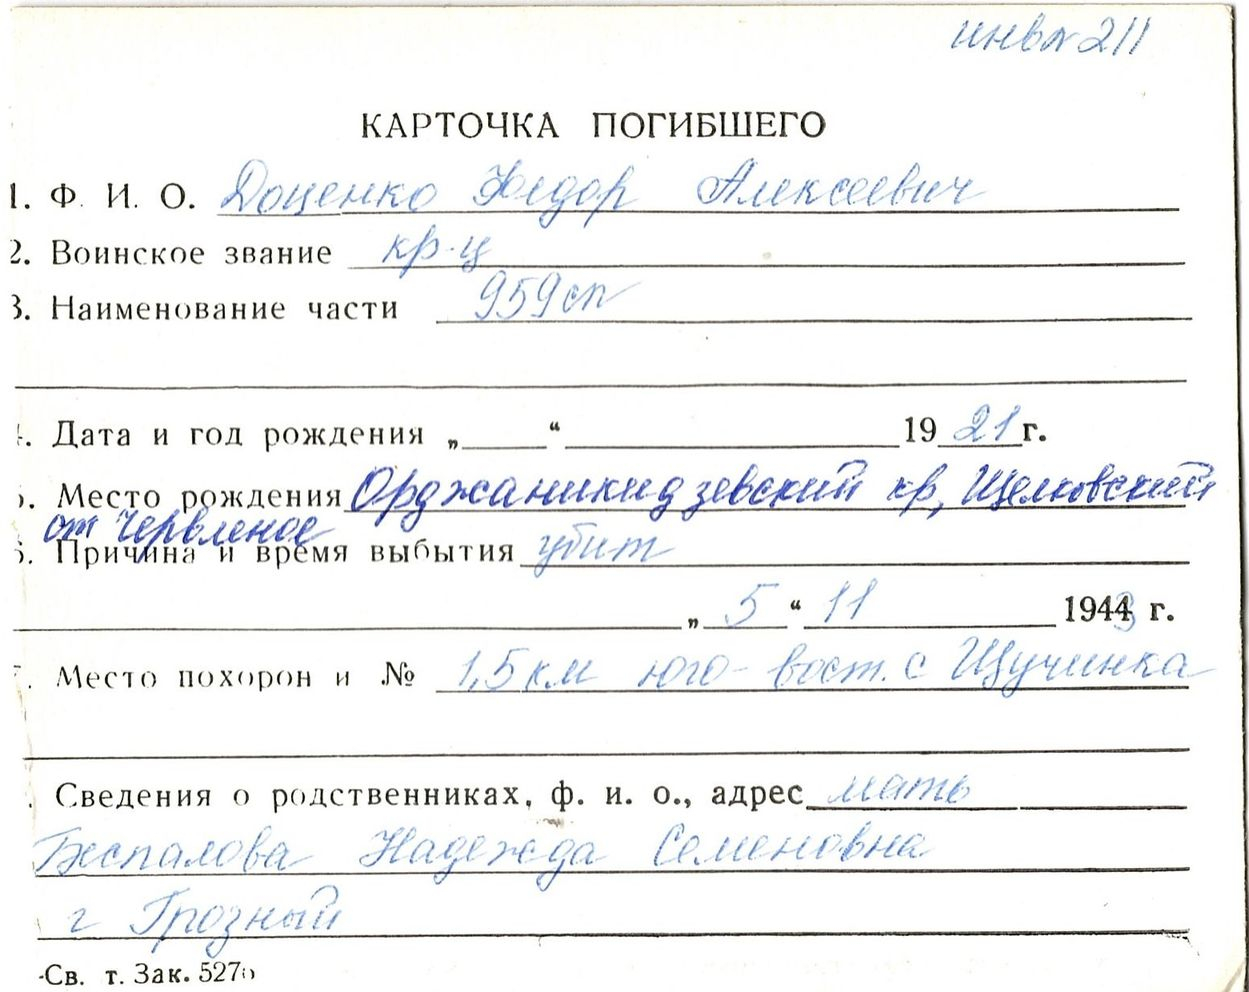 инв № 211
КАРТОЧКА ПОГИБШЕГО
1. Ф. И. О. Доценко Федор Алексеевич
2. Воинское звание кр-ц
3. Наименование части 959 сп
4. Дата и год рождения „ “ 19 21 г.
5. Место рождения Орджаникидзевский кр, Щелковский
ст Червленое
6. Причина и время выбытия убит
„ 5 “ 11 1943 г.
7. Место похорон и № 1,5 км юго-вост. с Щучинка
. Сведения о родственниках, ф. и. о., адрес мать
Беспалова Надежда Семеновна
г Грозный
Св. т. Зак. 527